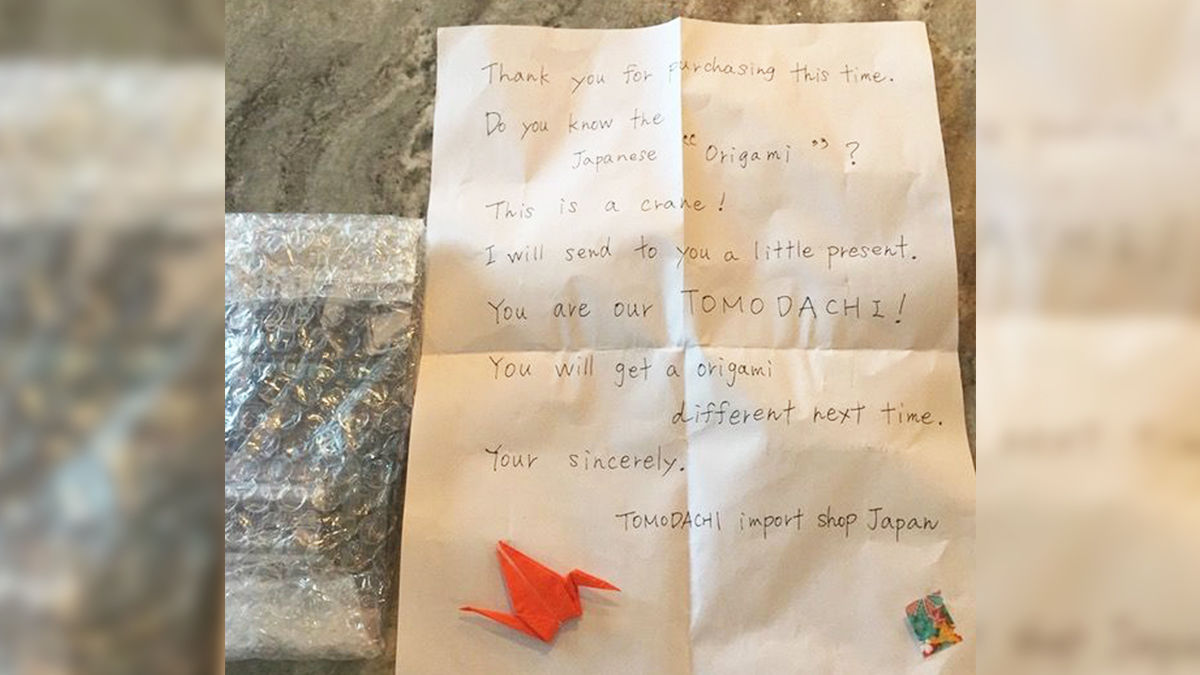 Thank you for purchasing this time.
Do you know the
Japanese “Origami” ?
This is a crane!
I will send to you a little present.
You are our TOMODACHI!
You will get a origami
different next time.
Your sincerely.
TOMODACHI import shop Japan